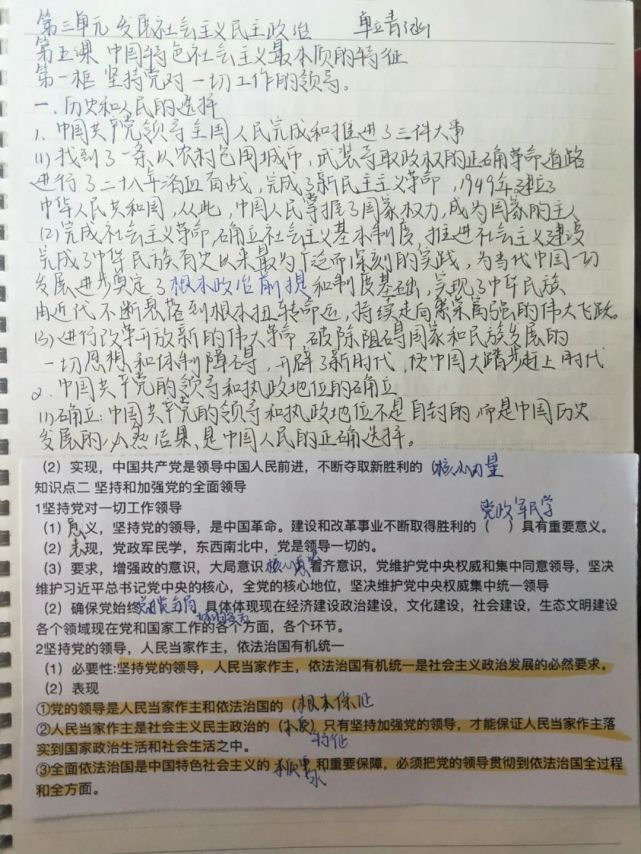 第三单元 发展社会主义民主政治 单立青涵
第五课 中国特色社会主义最本质的特征
第一框 坚持党对一切工作的领导。
一.历史和人民的选择
1、中国共产党领导全国人民完成和推进了三件大事
(1)找到了一条以农村包围城市，武装夺取政权的正确革命道路
进行了二十八年浴血奋战，完成了新民主主义革命，1949年建立了
中华人民共和国，从此，中国人民掌握了国家权力，成为国家的主人
(2)完成社会主义革命，确立社会主义基本制度，推进社会主义建设
完成了中华民族有史以来最为广泛而深刻的变革，为当代中国一切
发展进步奠定了根本政治前提和制度基础，实现了中华民族
由近代不断衰落到根本扭转命运，持续走向繁荣富强的伟大飞跃。
(3)进行改革开放新的伟大革命，破除阻碍国家和民族发展的
一切思想和体制障碍，开辟了新时代，使中国大踏步赶上时代
2.中国共产党的领导和执政地位的确立
(1)确立:中国共产党的领导和执政地位不是自封的，而是中国历史
发展的必然结果，是中国人民的正确选择。
(2) 实现，中国共产党是领导中国人民前进，不断夺取新胜利的（核心力量
知识点二 坚持和加强党的全面领导
1坚持党对一切工作领导 党政军民学
(1) 意义，坚持党的领导，是中国革命。建设和改革事业不断取得胜利的（ ）具有重要意义。
(2) 表现，党政军民学，东西南北中，党是领导一切的。
(3) 要求，增强政的意识，大局意识核心意识看齐意识，党维护党中央权威和集中同意领导，坚决
维护习近平总书记党中央的核心，全党的核心地位，坚决维护党中央权威集中统一领导
(2) 确保党始终总揽全局 具体体现现在经济建设政治建设，文化建设，社会建设，生态文明建设
各个领域现在党和国家工作的各个方面，各个环节。
2坚持党的领导，人民当家作主，依法治国有机统一
(1) 必要性:坚持党的领导，人民当家作主，依法治国有机统一是社会主义政治发展的必然要求。
(2) 表现
①党的领导是人民当家作主和依法治国的（根本保证
②人民当家作主是社会主义民主政治的（本质）只有坚持加强党的领导，才能保证人民当家作主落
特征
实到国家政治生活和社会生活之中。
③全面依法治国是中国特色社会主义的 本质要求和重要保障，必须把党的领导贯彻到依法治国全过程
和全方面。